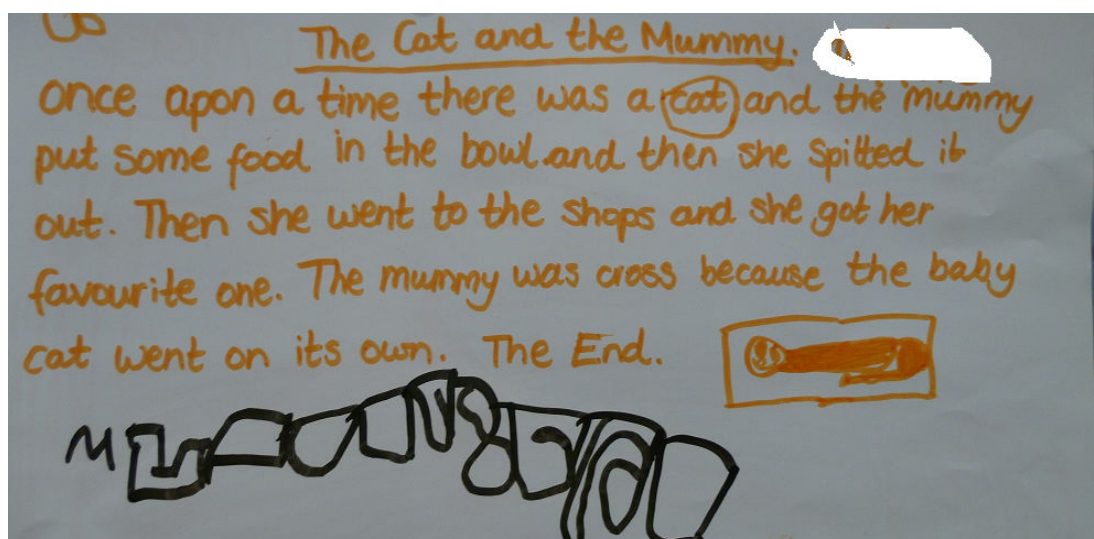 The Cat and the Mummy.
once apon a time there was a cat and the mummy
put some food in the bowl.and then she spitted it
out. Then she went to the shops and she got her
favourite one. The mummy was cross because the baby
cat went on its own. The End.